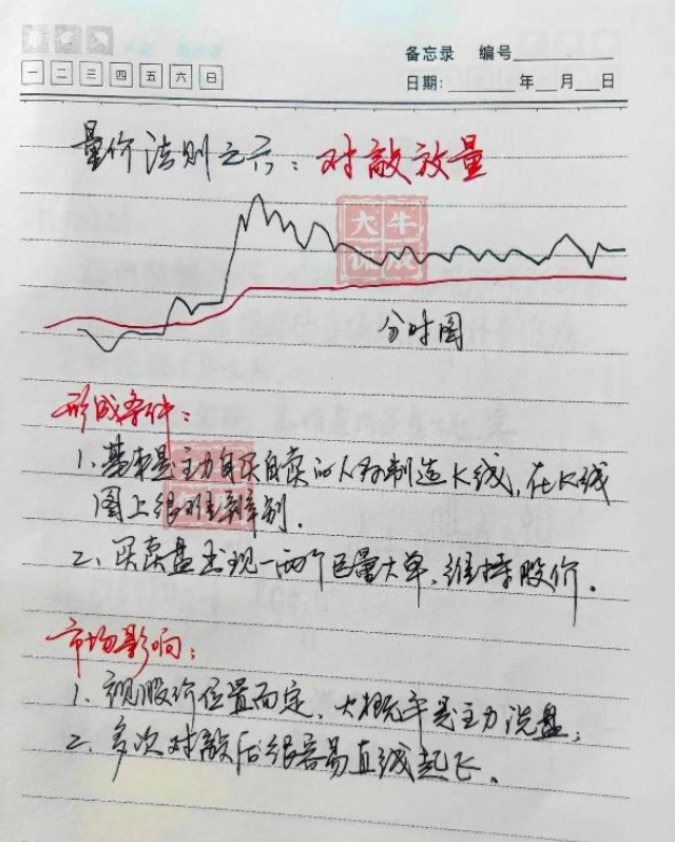 一 二 三 四 五 六 日
备忘录 编号
日期: 年 月 日
量价法则之六:对敲放量
大牛
分时图
形成条件:
1、基本是主力自买自卖的人为制造K线,在K线
图上很难辨别.
2、买卖盘出现一两个巨量大单、维持股价.
市场影响:
1、视股价位置而定、大概率是主力洗盘;
2、多次对敲后很容易直线起飞.